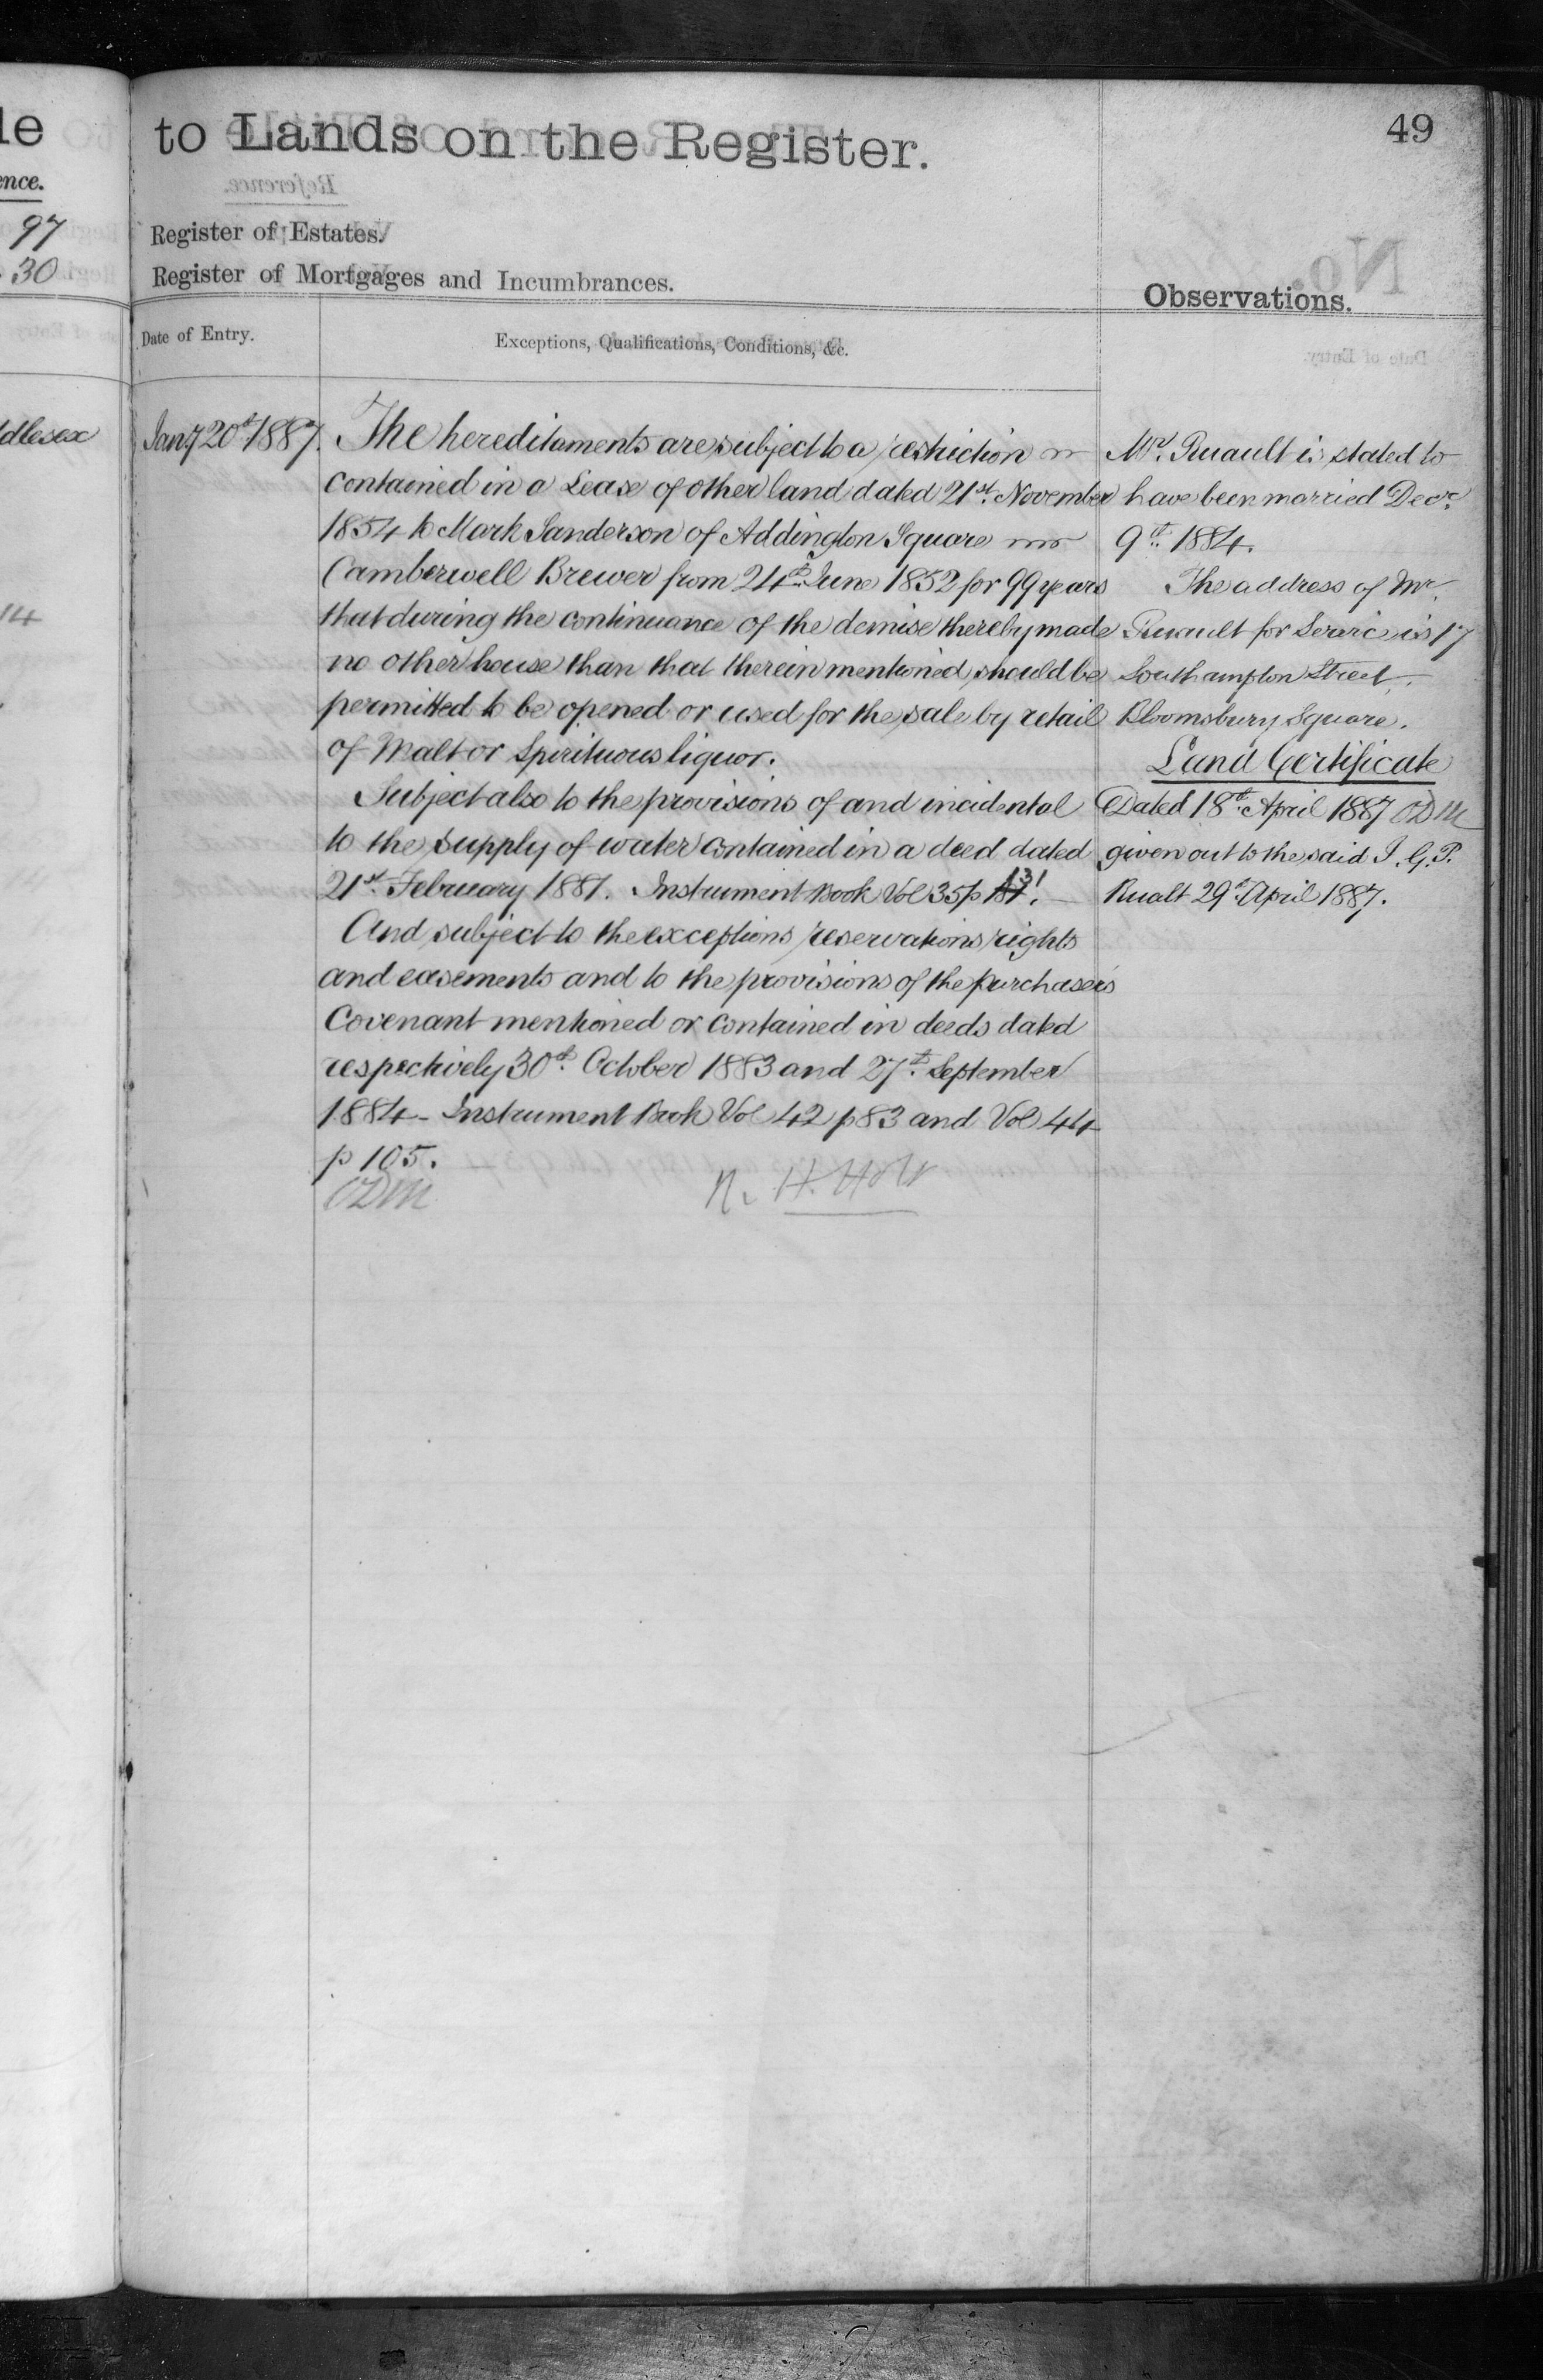 le
ence.
97
30
dlesex
14
to Lands on the Register.
49
Register of Estates.
Register of Mortgages and Incumbrances.
Observations.
Date of Entry.
Exceptions, Qualifications, Conditions, &c.
Jany 20th 1887.
The hereditaments are subject to a restriction
contained in a Lease of other land dated 21st. November
1854 to Mark Sanderson of Addington Square
Camberwell Brewer from 24th June 1852 for 99 years
that during the continuance of the demise thereby made
no other house than that therein mentioned should be
permitted to be opened or used for the sale by retail
of Malt or Spirituous liquor.
Subject also to the provisions of and incidental
to the supply of water contained in a deed dated
21st. February 1881. Instrument Book Vol 35 p 131.
And subject to the exceptions reservations rights
and easements and to the provisions of the purchaser's
Covenant mentioned or contained in deeds dated
respectively 30th. October 1883 and 27th. September
1884 - Instrument Book Vol 42 p 83 and Vol 44
p 105.
ODM
H. Holt
Mr. Ruault is stated to
have been married Decr.
9th. 1884.
The address of Mr.
Ruault for is 17
Southampton Street,
Bloomsbury Square.
Land Certificate
Dated 18th. April 1887 ODM
given out to the said I. G. P.
Rualt 29th. April 1887.